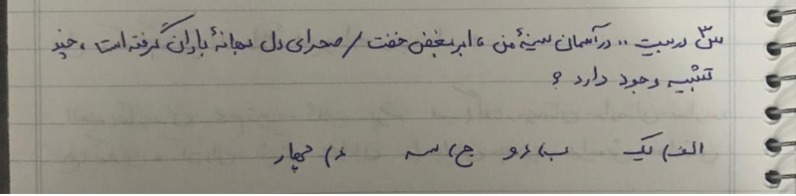 س۳ در بیت ,, در آسمان سینهٔ من ، ابر بغض خفت / صحرای دل بهانهٔ باران گرفته است ، چند
تشبیه وجود دارد ؟
الف) یک ب) دو ج) سه د) چهار